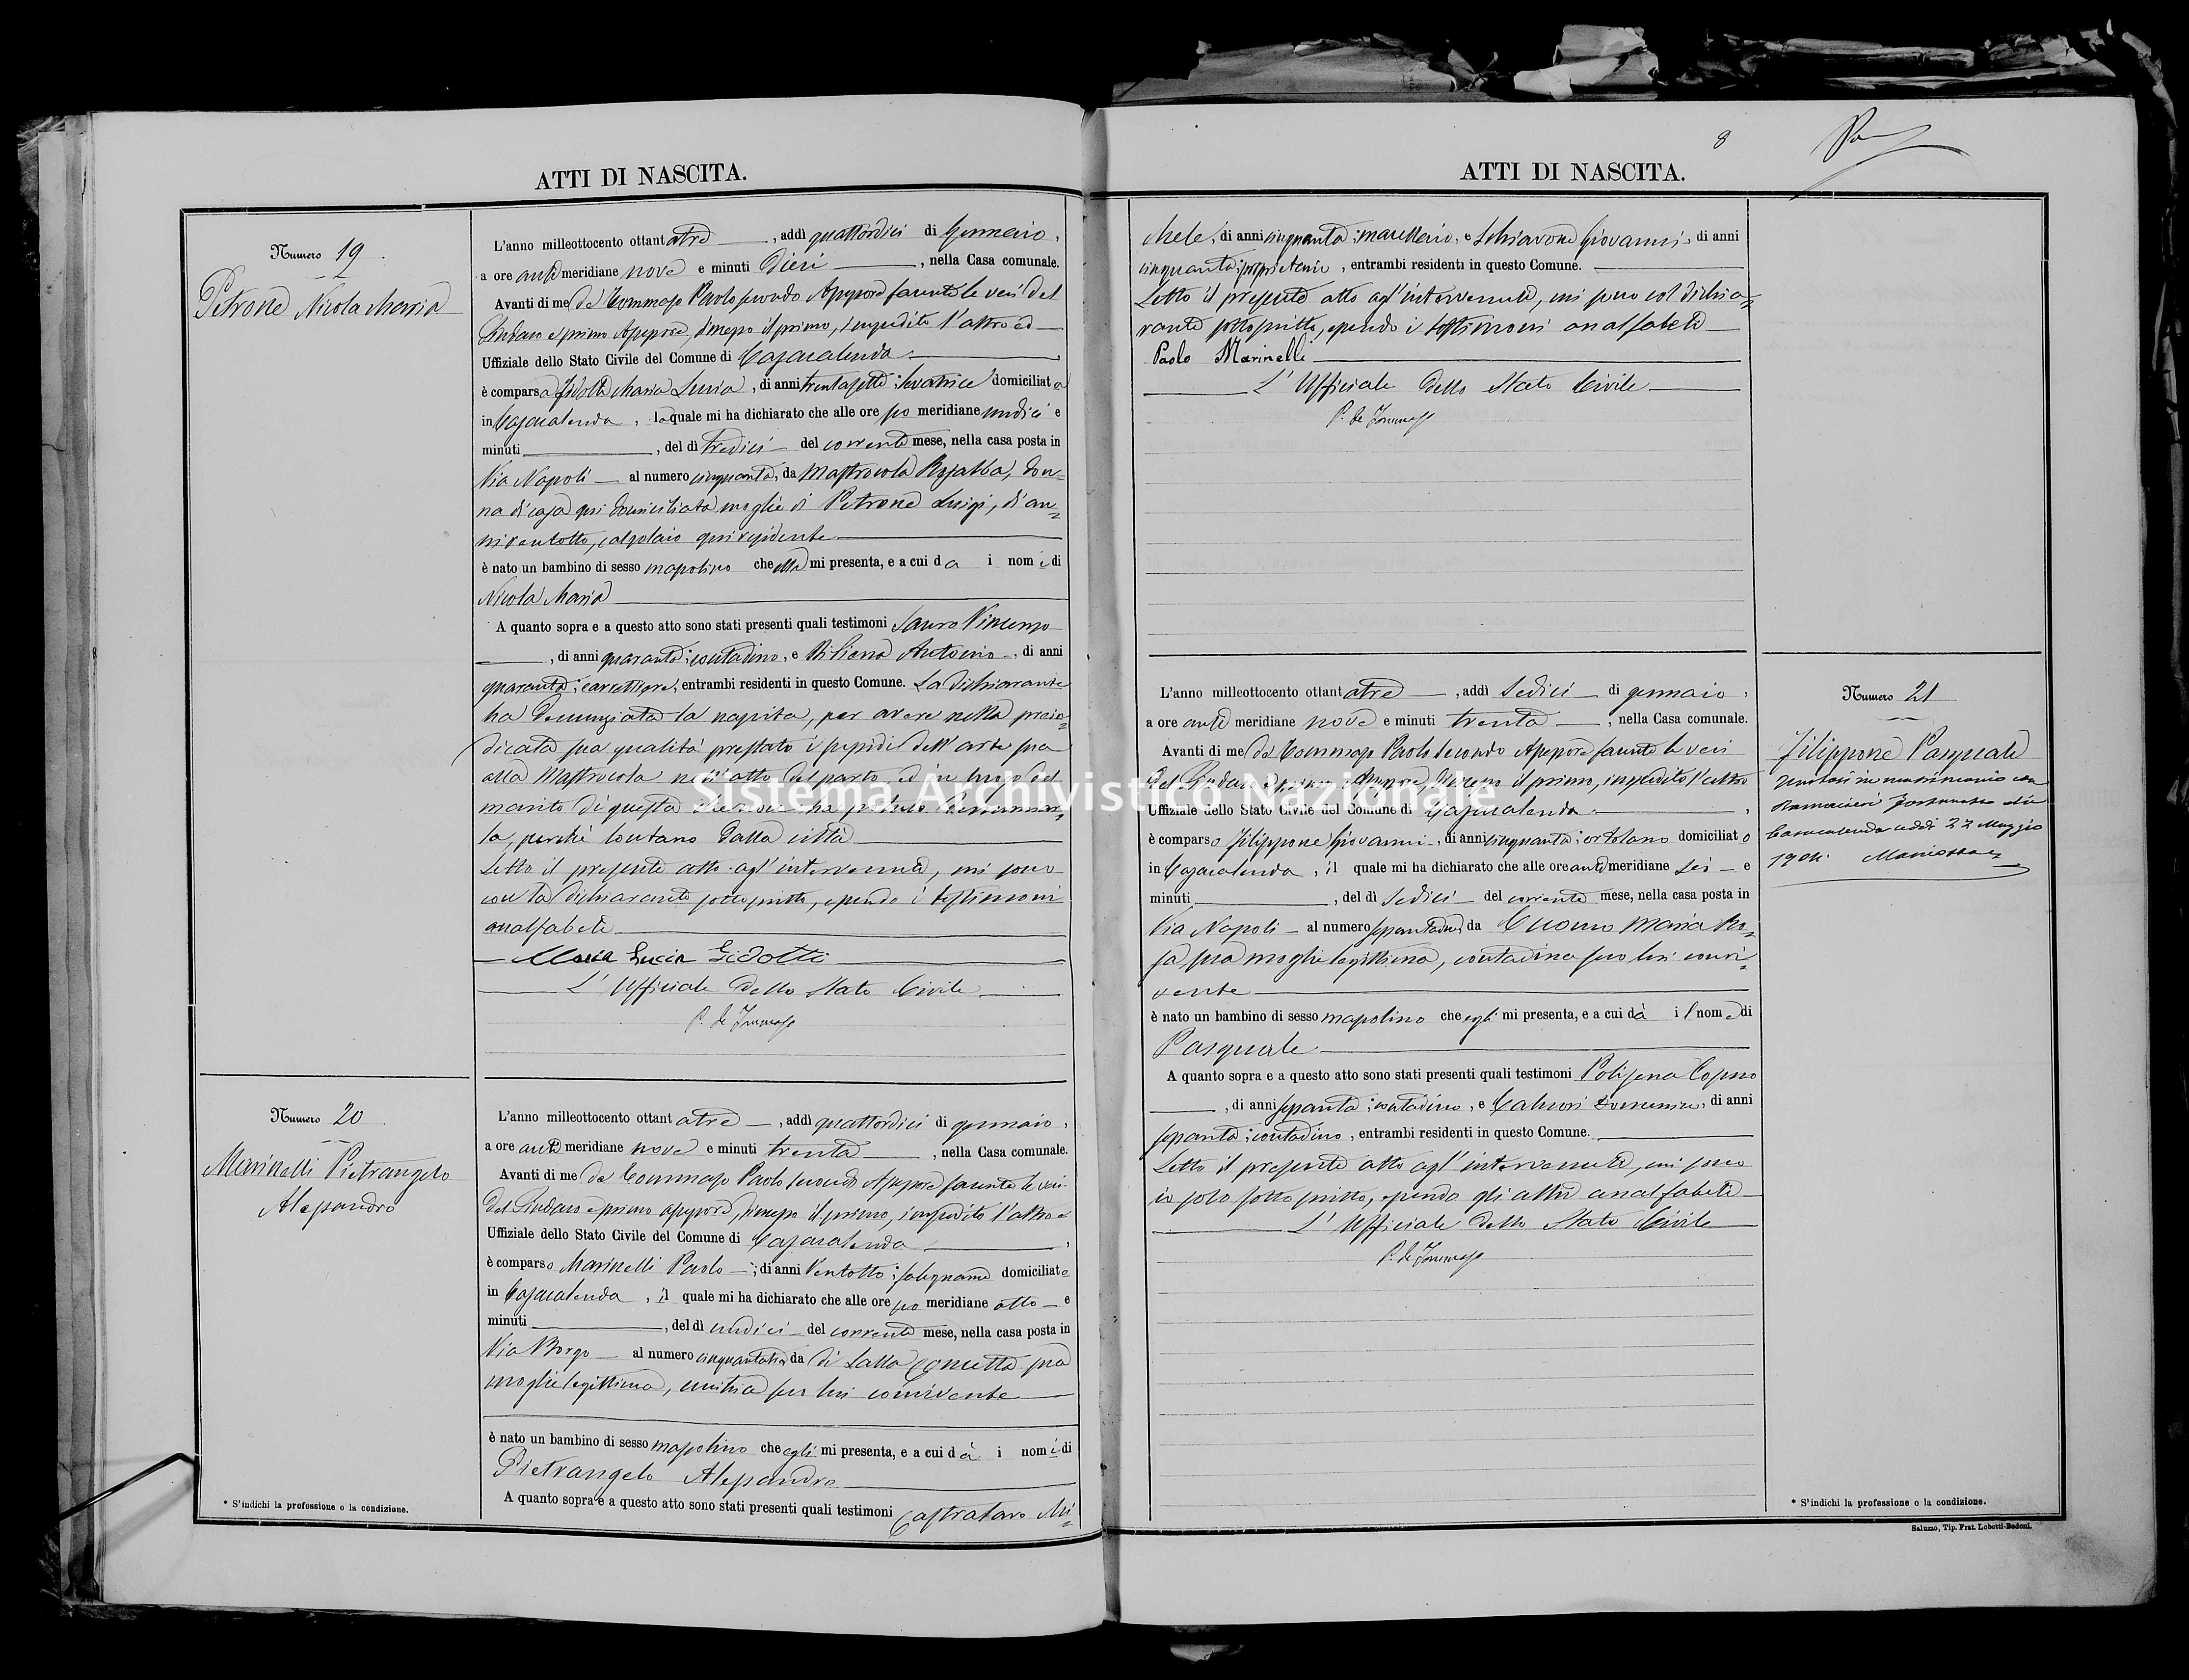 ATTI DI NASCITA.
Numero 19
Petrone Nicola Maria
L'anno milleottocento ottantatre, addì quattordici di Gennaio,
a ore antimeridiane nove e minuti dieci, nella Casa comunale.
Avanti di me de Tommaso Paolo secondo Assessore facente le veci del
Sindaco e primo Assessore, dimesso il primo, impedito l'altro ed
Uffiziale dello Stato Civile del Comune di Casacalenda
è comparsa Maria Lucia, di anni trentasette; levatrice domiciliata
in Casacalenda, la quale mi ha dichiarato che alle ore po meridiane undici e
minuti, del dì tredici del corrente mese, nella casa posta in
Via Napoli al numero cinquanta, da Mastrocola Rosalba, don-
na di casa qui domiciliata moglie di Petrone Luigi, di an-
ni ventotto, calzolaio qui residente
è nato un bambino di sesso mascolino che ella mi presenta, e a cui da i nomi di
Nicola Maria
A quanto sopra e a questo atto sono stati presenti quali testimoni Sauro Vincenzo
, di anni quaranta; contadino, e Antonio, di anni
quaranta; carrettiere, entrambi residenti in questo Comune. La dichiarante
ha denunziata la nascita, per avere nella prein-
dicata sua qualità prestato i sussidi dell'arte sua
alla Mastrocola nell'atto del parto, ed in luogo del
marito di questa che non ha potuto denunziar-
la, perchè lontano dalla città
Letto il presente atto agl'intervenuti, mi sono
con la dichiarante sottoscritto, essendo i testimoni
analfabeti
Maria Lucia Gidotti
L'Ufficiale dello Stato Civile
P. de Tommaso
Numero 20
Marinelli Pietrangelo
Alessandro
L'anno milleottocento ottantatre, addì quattordici di gennaio,
a ore anti meridiane nove e minuti trenta, nella Casa comunale.
Avanti di me de Tommaso Paolo secondo Assessore facente le veci
del Sindaco e primo assessore, dimesso il primo, impedito l'altro e
Uffiziale dello Stato Civile del Comune di Casacalenda,
è comparso Marinelli Paolo; di anni ventotto; falegname domiciliato
in Casacalenda, il quale mi ha dichiarato che alle ore po meridiane otto e
minuti, del dì undici del corrente mese, nella casa posta in
Via Borgo al numero da di Lalla Concetta sua
moglie legittima, seco lui convivente
è nato un bambino di sesso mascolino che egli mi presenta, e a cui dà i nomi di
Pietrangelo Alessandro
A quanto sopra e a questo atto sono stati presenti quali testimoni Castrataro Mi-
* S'indichi la professione o la condizione.
8
ATTI DI NASCITA.
chele, di anni cinquanta; macellaio, e Schiavone Giovanni, di anni
cinquanta; proprietario, entrambi residenti in questo Comune.
Letto il presente atto agl'intervenuti, mi sono col dichia-
rante sottoscritto, essendo i testimoni analfabeti
Paolo Marinelli
L'Ufficiale dello Stato Civile
P. de Tommaso
Numero 21
Filippone Pasquale
unitosi in matrimonio con
Ramacieri Fortunata di
Casacalenda addì 22 Maggio
1904.
L'anno milleottocento ottantatre, addì sedici di gennaio,
a ore anti meridiane nove e minuti trenta, nella Casa comunale.
Avanti di me de Tommaso Paolo secondo Assessore facente le veci
del Sindaco e primo Assessore, dimesso il primo, impedito l'altro
Uffiziale dello Stato Civile del Comune di Casacalenda,
è comparso Filippone Giovanni, di anni cinquanta; ortolano domiciliato
in Casacalenda, il quale mi ha dichiarato che alle ore anti meridiane sei e
minuti, del dì sedici del corrente mese, nella casa posta in
Via Napoli al numero da Cuomo Maria Ro-
sa sua moglie legittima, contadina seco lui convi-
vente
è nato un bambino di sesso mascolino che egli mi presenta, e a cui dà il nome di
Pasquale
A quanto sopra e a questo atto sono stati presenti quali testimoni Polisena Cosmo
, di anni sessanta; contadino, e Domenico, di anni
sessanta; contadino, entrambi residenti in questo Comune.
Letto il presente atto agl'intervenuti, mi sono
io solo sottoscritto, essendo gli altri analfabeti
L'Ufficiale dello Stato Civile
P. de Tommaso
* S'indichi la professione o la condizione.
Saluzzo, Tip. Frat. Lobetti-Bodoni.
Sistema Archivistico Nazionale